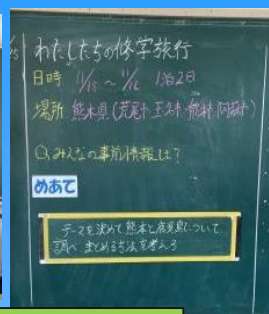 わたしたちの修学旅行
日時 11/15 ~ 11/16 1泊2日
場所 熊本県(荒尾市・玉名市・熊本市・阿蘇市)
Q,みんなの事前情報は?
めあて
テーマを決めて熊本と鹿児島について、
調べ、まとめる方法を考えろう